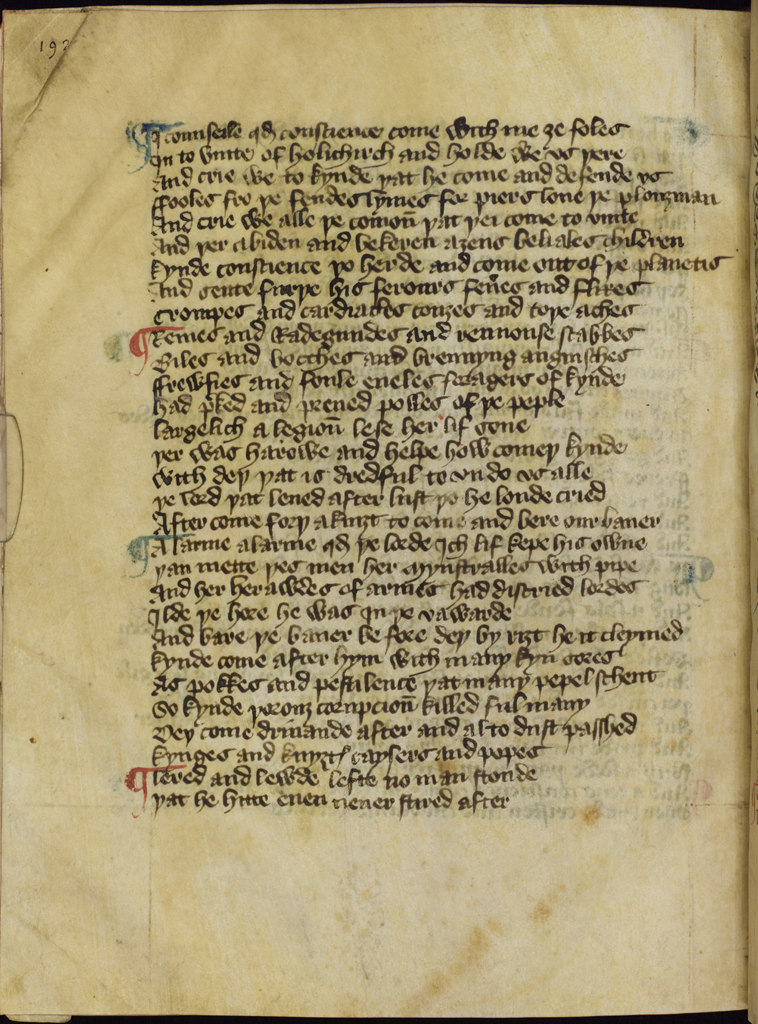 192
I counseile qd conscience come with me ȝe foles
In to vnite of holichirch and holde we vs þere
And crie we to kynde þat he come and defende vs
Fooles fro þe fendes lymes for piers loue þe plouȝman
And crie we alle þe comoun þat þei come to vnite
And þer abiden and bekeren aȝens beliales children
kynde conscience þo herde and come out of þe planetis
And sente forþe his forours feueres and fluxes
Crompes and cardiacles couȝes and toþe aches
Remes and Radegundes and roinouse scabbes
Biles and bocches and brennyng anguisches
Frensies and foule eueles foragers of kynde
had pked and preued polles of þe peple
largelich a legioun lese her lif sone
þer was harowe and helpe how comeþ kynde
with deþ þat is dredful to vndo vs alle
þe lord þat leued after lust þo he loude cried
After confort a kniȝt to come and bere our baner
Alarme alarme qd þe lorde ich lif kepe his owne
þan mette þes men her mynstralles with pipe
And her herawdes of armes had discried lordes
Ilde þe hore he was in þe vawarde
And bare þe baner be fore deþ by riȝt he it cleymed
kynde come after hym with many kyn sores
As pokkes and pestilence þat many pepel schent
So kynde þorouȝ corupcioun killed ful many
Deþ come driuande after and al to dust passhed
kynges and knyȝtes caysers and popes
lered and lewde lefte no man stonde
þat he hitte euen neuer stired after